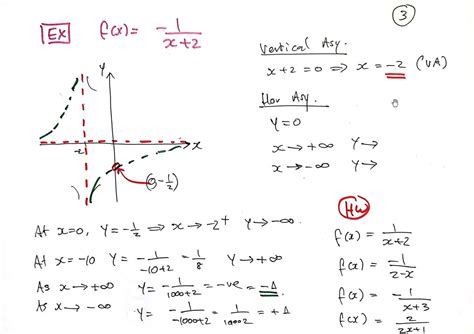 3
EX f(x) = -1/(x+2)
Vertical Asy.
x+2=0 ⇒ x = -2 (VA)
Hor Asy.
Y=0
x → +∞ Y→
x → -∞ Y→
Y
x
-2
(0,-1/2)
At x=0, Y=-1/2 ⇒ x → -2⁺ Y → -∞.
At x=-10 Y = -1/(-10+2) = -1/-8 = 1/8 Y → +∞
As x → +∞ Y = -1/(1000+2) = -ve = -Δ
As x → -∞ Y = -1/(-1000+2) = 1/(1000-2) = +Δ
HW
f(x) = 1/(x+2)
f(x) = -1/(2-x)
f(x) = -1/(x+3)
f(x) = 2/(2x+1)